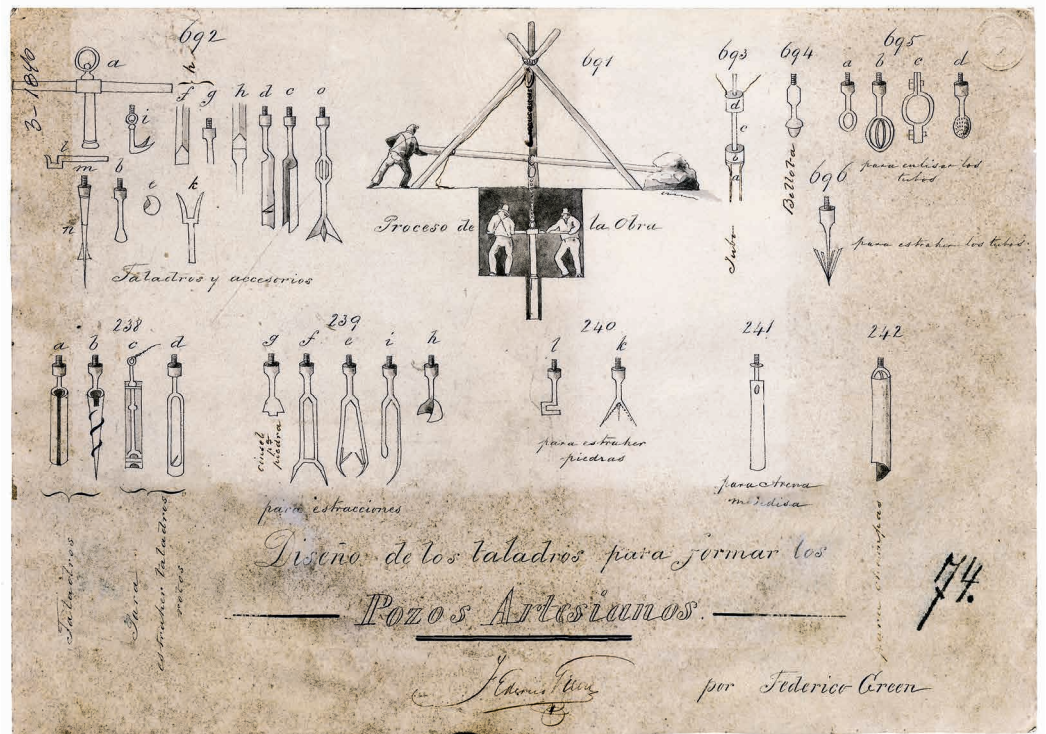 3-1810
692
a
h
f g h d c o
i
l
m b e k
n
Taladros y accesorios
691
Proceso de la Obra
693
d
c
b
a
Tubo
694
Bellota
695
a b c d
para enlisar los
tubos
696
para estraher los tubos
238
a b c d
Taladros
Para
estraher taladros
rotos
239
g f e i h
cinsel
pa
piedra
para estracciones
240
l k
para estraher
piedras
241
para Arena
242
para
Diseño de los taladros para formar los
Pozos Artesianos.
74.
por Federico Green